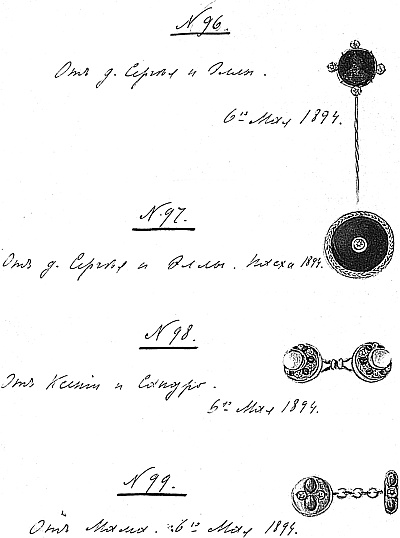 N. 96.
Отъ д. Сергѣя и Эллы.
6го Мая 1894.
N. 97.
Отъ д. Сергѣя и Эллы. Пасха 1894.
N 98.
Отъ Ксеніи и Сандро.
6го Мая 1894.
N 99.
Отъ Мама. 6го Мая 1894.